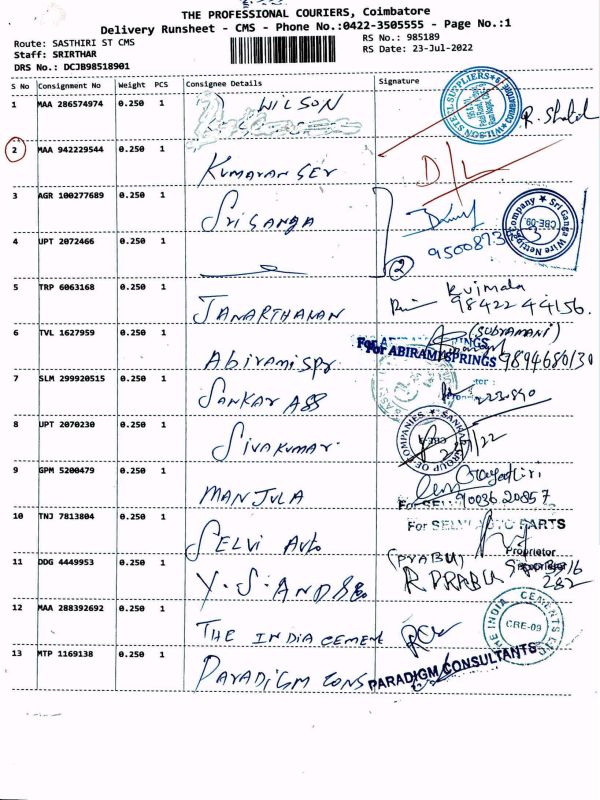 THE PROFESSIONAL COURIERS, Coimbatore
Delivery Runsheet - CMS - Phone No.:0422-3505555 - Page No.:1
Route: SASTHIRI ST CMS
Staff: SRIRTHAR
DRS No.: DCJB98518901
RS No.: 985189
RS Date: 23-Jul-2022
S No Consignment No Weight PCS Consignee Details Signature
1 MAA 286574974 0.250 1 WILSON
WILSON STEEL SUPPLIERS
2 MAA 942229544 0.250 1 Kumaran Ser D/L
3 AGR 100277689 0.250 1 Sri Ganga
Sri Ganga Wire Netting Company
CBE-09.
4 UPT 2072466 0.250 1
2
5 TRP 6063168 0.250 1 JANARTHANAN
98422 44156.
6 TVL 1627959 0.250 1 Abirami Spr (SUBRAMANI)
For ABIRAMI SPRINGS
9894680130
7 SLM 299920515 0.250 1 SANKAR ASS
8 UPT 2070230 0.250 1 SIVAKUMAR
SANKAR GROUP OF COMPANIES
9 GPM 5200479 0.250 1 MANJULA
90036 20857
10 TNJ 7813804 0.250 1 SELVI Auto
For SELVI AUTO PARTS
Proprietor
11 DDG 4449953 0.250 1 Y.S. AND Co
(PRABU)
R PRABU
12 MAA 288392692 0.250 1 THE INDIA CEMENT
THE INDIA CEMENTS LTD
CBE-09
13 MTP 1169138 0.250 1 PARADIGM CONS
PARADIGM CONSULTANTS